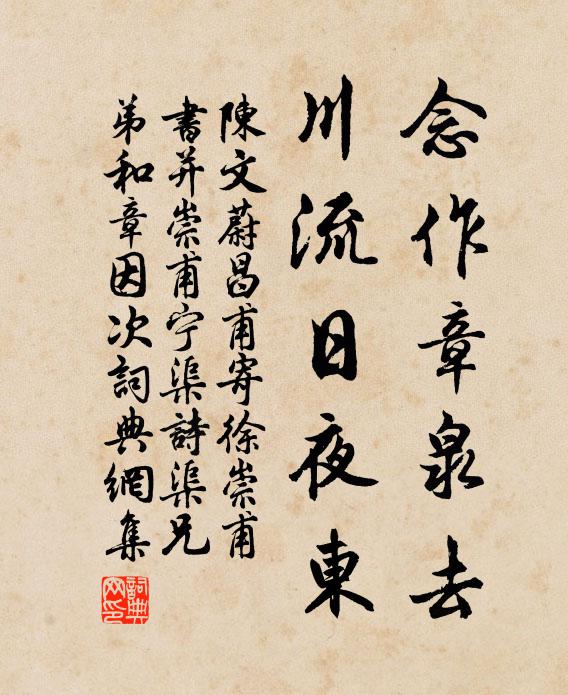 念作章泉去
川流日夜東
陳文蔚昌甫寄徐崇甫
書并崇甫宁渠詩渠兄
弟和章因次詞典網集
詞典
网印